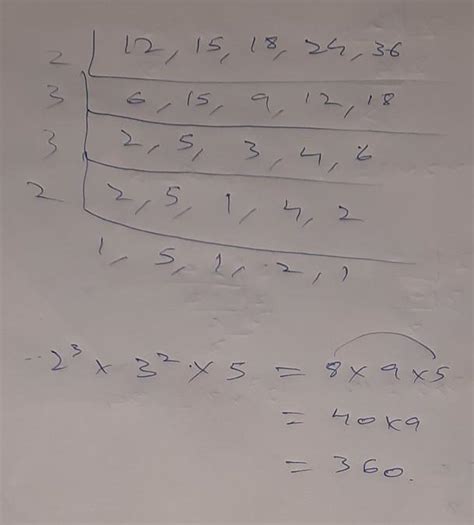 2 | 12, 15, 18, 24, 36
3 | 6, 15, 9, 12, 18
3 | 2, 5, 3, 4, 6
2 | 2, 5, 1, 4, 2
1, 5, 1, 2, 1
2³ × 3² × 5 = 8×9×5
= 40×9
= 360.